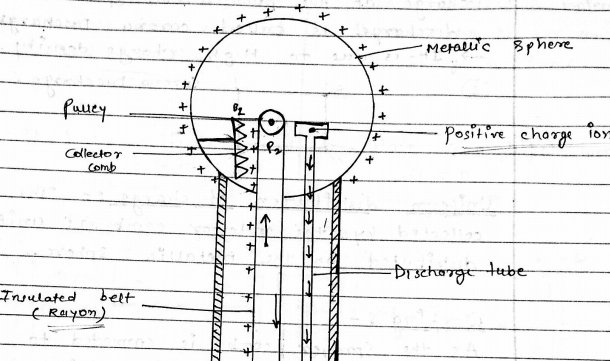 Metallic Sphere
B2
Pulley
P2
Positive charge ion
Collector
Comb
Discharge tube
Insulated belt
(Rayon)